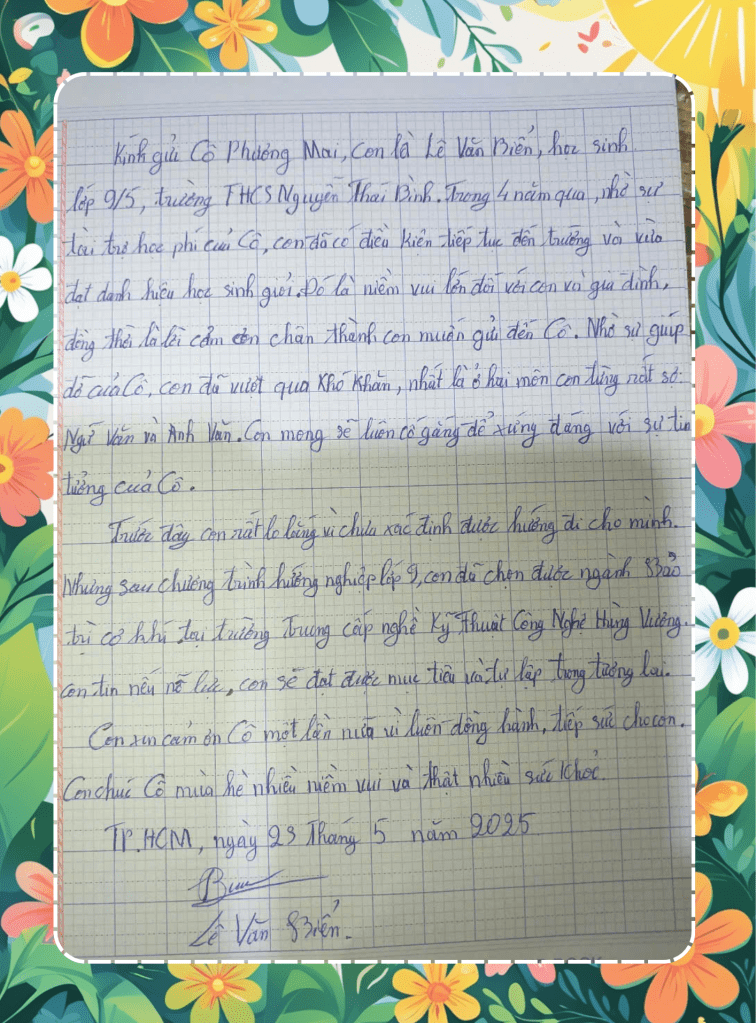 Kính gửi Cô Phương Mai, con là Lê Văn Biển, học sinh
lớp 9/5, trường THCS Nguyễn Thái Bình. Trong 4 năm qua, nhờ sự
tài trợ học phí của Cô, con đã có điều kiện tiếp tục đến trường và vừa
đạt danh hiệu học sinh giỏi. Đó là niềm vui lớn đối với con và gia đình,
đồng thời là lời cảm ơn chân thành con muốn gửi đến Cô. Nhờ sự giúp
đỡ của Cô, con đã vượt qua khó khăn, nhất là ở hai môn con từng rất sợ:
Ngữ Văn và Anh Văn. Con mong sẽ luôn cố gắng để xứng đáng với sự tin
tưởng của Cô.
Trước đây con rất lo lắng vì chưa xác định được hướng đi cho mình.
Nhưng sau chương trình hướng nghiệp lớp 9, con đã chọn được ngành Bảo
trì cơ khí tại trường Trung cấp nghề Kỹ Thuật Công Nghệ Hùng Vương.
con tin nếu nỗ lực, con sẽ đạt được mục tiêu và tự lập trong tương lai.
Con xin cảm ơn Cô một lần nữa vì luôn đồng hành, tiếp sức cho con.
Con chúc Cô mùa hè nhiều niềm vui và thật nhiều sức khoẻ.
TP.HCM, ngày 23 Tháng 5 năm 2025
Lê Văn Biển.